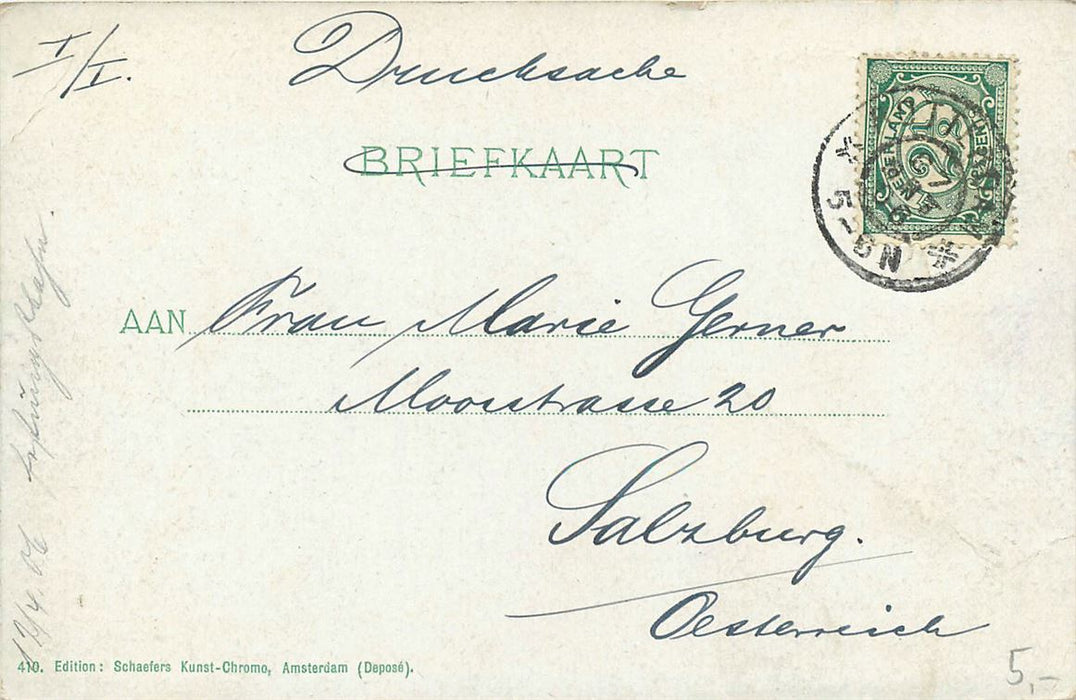 I/I.
Drucksache
BRIEFKAART
NEDERLAND
2½
CENT
5-6N
AAN Frau Marie Gerner
Moosstrasse 20
Salzburg.
Oesterreich
12/4.06
410. Edition: Schaefers Kunst-Chromo, Amsterdam (Deposé).
5,-